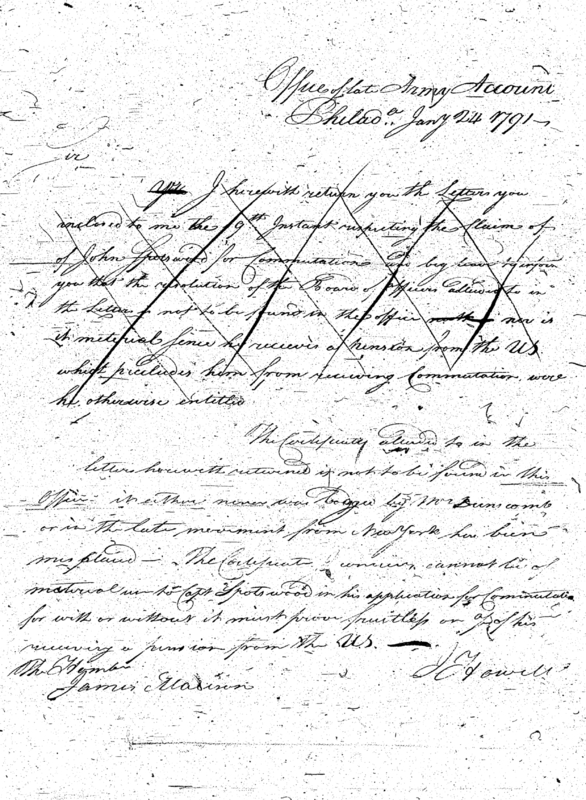 Office of late Army Account
Philada. Jany 24 1791
ir
I herewith return you the Letters you
enclosed to me the 9th Instant respecting the Claim of
of John Spotswood for Commutation and beg leave to inform
you that the resolution of the Board of Officers alluded to in
the Letters is not to be found in the office nor is
it meterial sence he receives a pension from the US
which precludes him from reciving Commutation were
he otherwise entitled
The Certificate alluded to in the
letter herewith returned is not to be found in this
Office it either never was lodged by Mr Dunscomb
or in the late movement from New York has been
misplaced — The Certificate however cannot be of
material use to Capt Spotswood in his application for Commutation
for with or without it must prove fruitless on a/c of his
receiving a pension from the US. —
J Howell
The Honble
James Madison